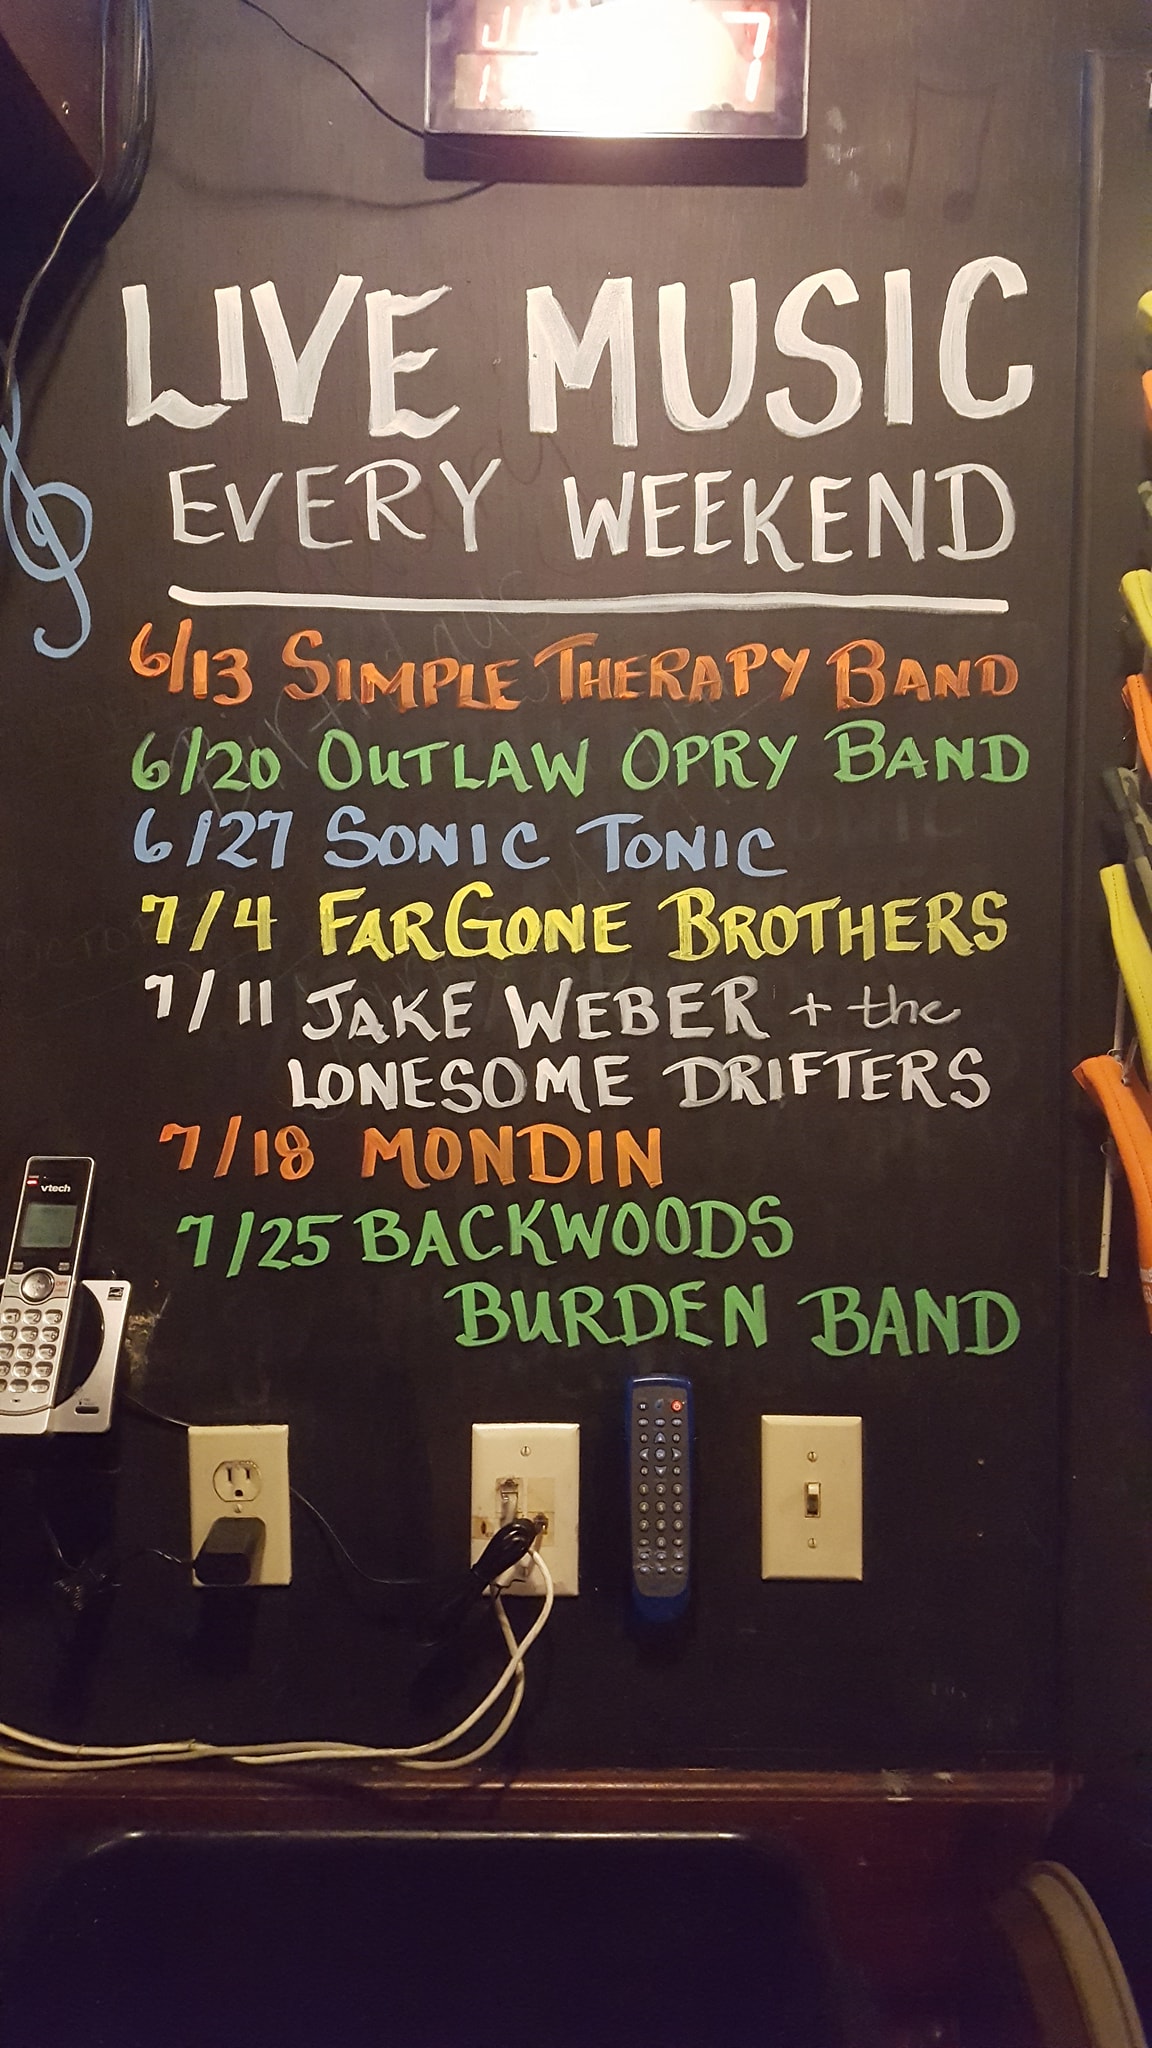 LIVE MUSIC
EVERY WEEKEND
6/13 SIMPLE THERAPY BAND
6/20 OUTLAW OPRY BAND
6/27 SONIC TONIC
7/4 FARGONE BROTHERS
7/11 JAKE WEBER + the
LONESOME DRIFTERS
7/18 MONDIN
7/25 BACKWOODS
BURDEN BAND
vtech